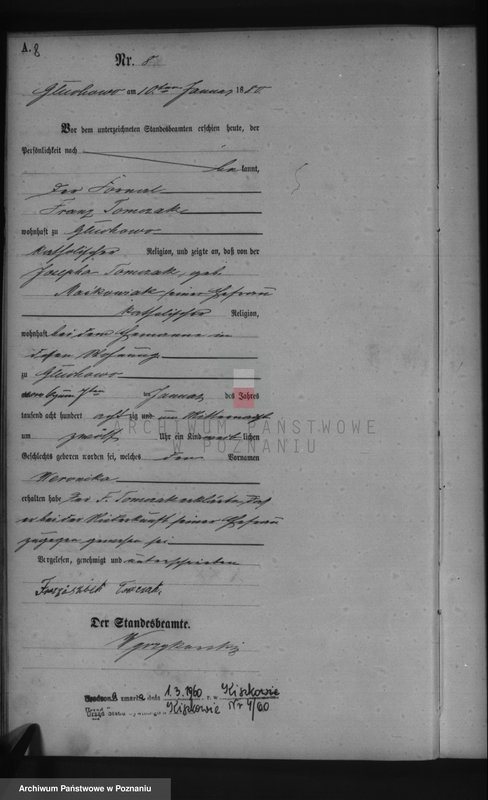 A. 8
Nr. 8
Gluchowo am 10ten Januar 1880.
Vor dem unterzeichneten Standesbeamten erschien heute, der
Persönlichkeit nach
be kannt,
der Fornal
Franz Tomczak
wohnhaft zu Gluchowo
katholischer Religion, und zeigte an, daß von der
Josepha Tomczak, geb.
Maikowiak seiner Ehefrau
katholischer Religion,
wohnhaft bei dem Ehemanne in
dessen Wohnung
zu Gluchowo
am Januar des Jahres
tausend acht hundert achtzig und um Mitternacht
um zwölf Uhr ein Kind weiblichen
Geschlechts geboren worden sei, welches den Vornamen
Weronika
erhalten habe. Der F. Tomczak erklärte, daß
er bei der Niederkunft seiner Ehefrau
zugegen gewesen sei
Vorgelesen, genehmigt und unterschrieben
Tomczak
Der Standesbeamte.
zmarł dnia 1.3.1960 r. w Kiszkowie
Urząd Kiszkowie Nr 4/60
ARCHIWUM PAŃSTWOWE
W POZNANIU
Archiwum Państwowe w Poznaniu